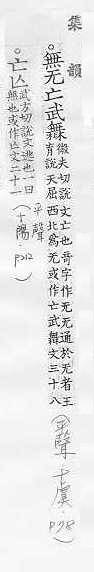 集韻
。無无亡武𣞤 微夫切說文亡也奇字作无无通於元者王育說天屈西北爲无或作亡武𣞤文三十八
(平聲十虞・p78)
。亡亾 武方切說文逃也一曰無也或作亾文二十一
平聲
(十陽・p212)